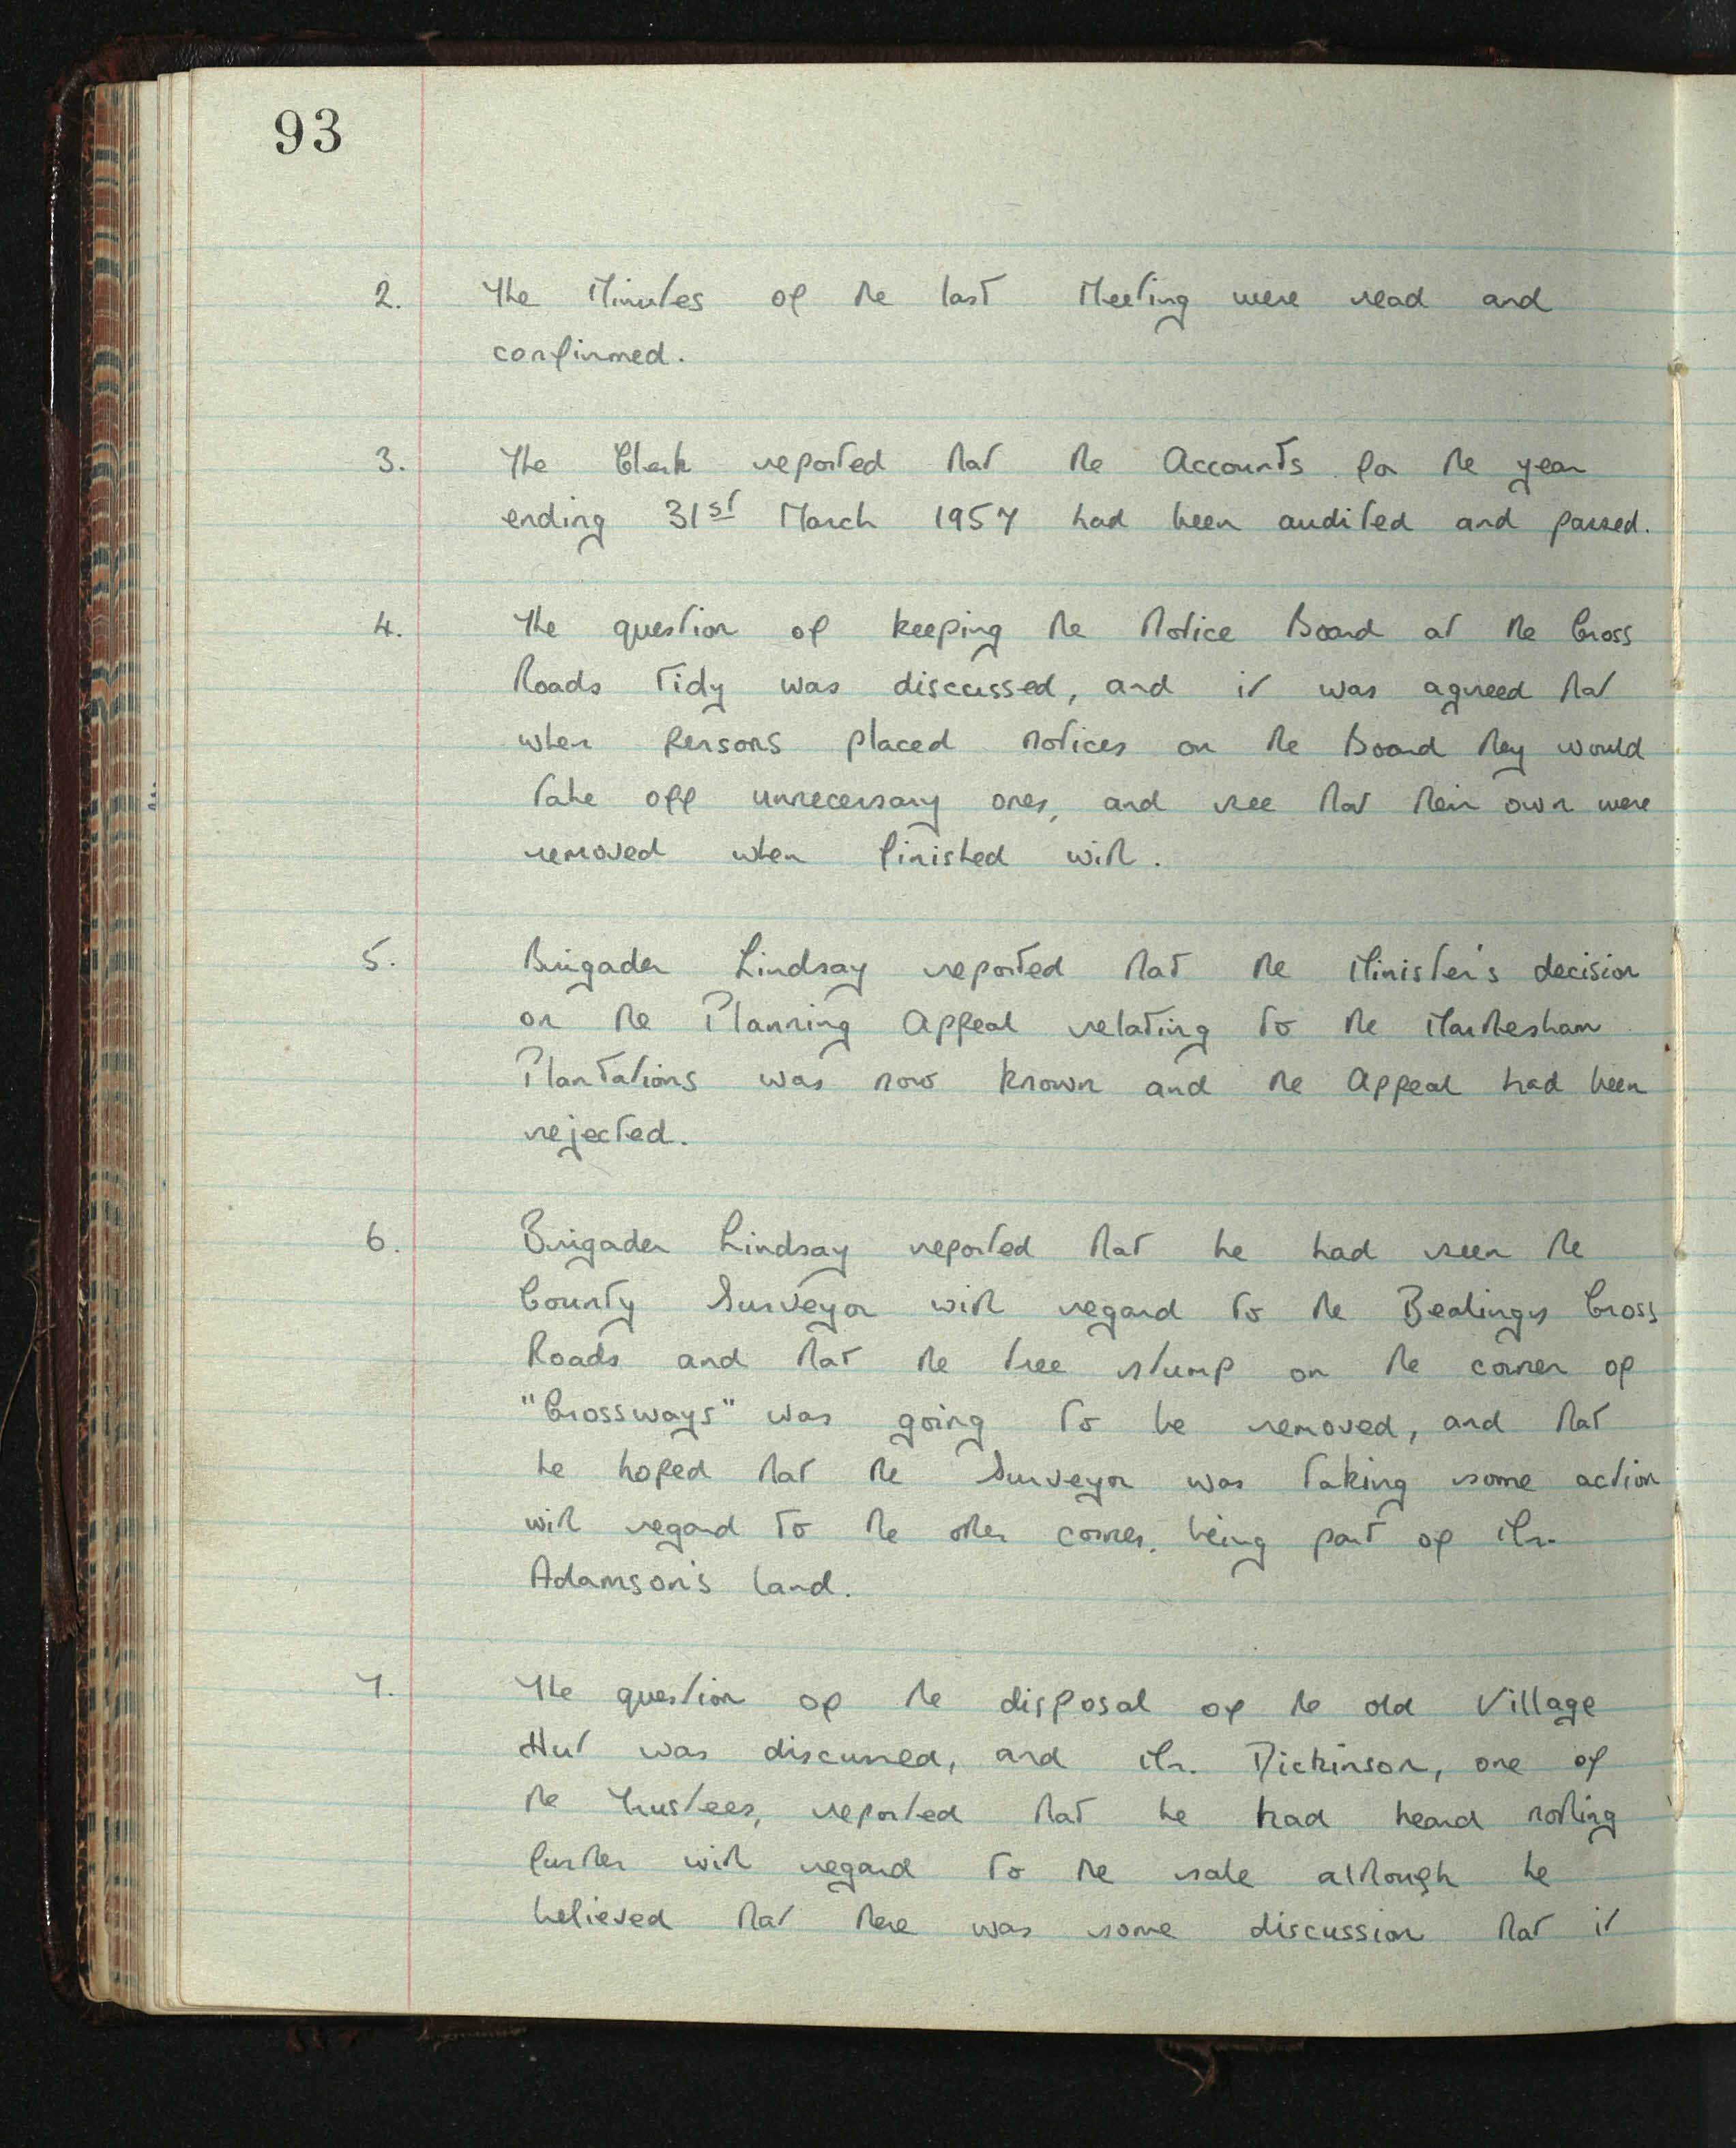 93
2. The Minutes of the last Meeting were read and
confirmed.
3. The Clerk reported that the Accounts for the year
ending 31st March 1957 had been audited and passed.
4. The question of keeping the Notice Board at the Cross
Roads tidy was discussed, and it was agreed that
when persons placed notices on the Board they would
take off unnecessary ones, and see that their own were
removed when finished with.
5. Brigader Lindsay reported that the Minister's decision
on the Planning Appeal relating to the Martlesham
Plantations was now known and the Appeal had been
rejected.
6. Brigader Lindsay reported that he had seen the
County Surveyor with regard to the Bealings Cross
Roads and that the tree stump on the corner of
"Crossways" was going to be removed, and that
he hoped that the Surveyor was taking some action
with regard to the other corner, being part of Mr.
Adamson's land.
7. The question of the disposal of the old Village
Hut was discussed, and Mr. Dickinson, one of
the Trustees, reported that he had heard nothing
further with regard to the sale although he
believed that there was some discussion that it